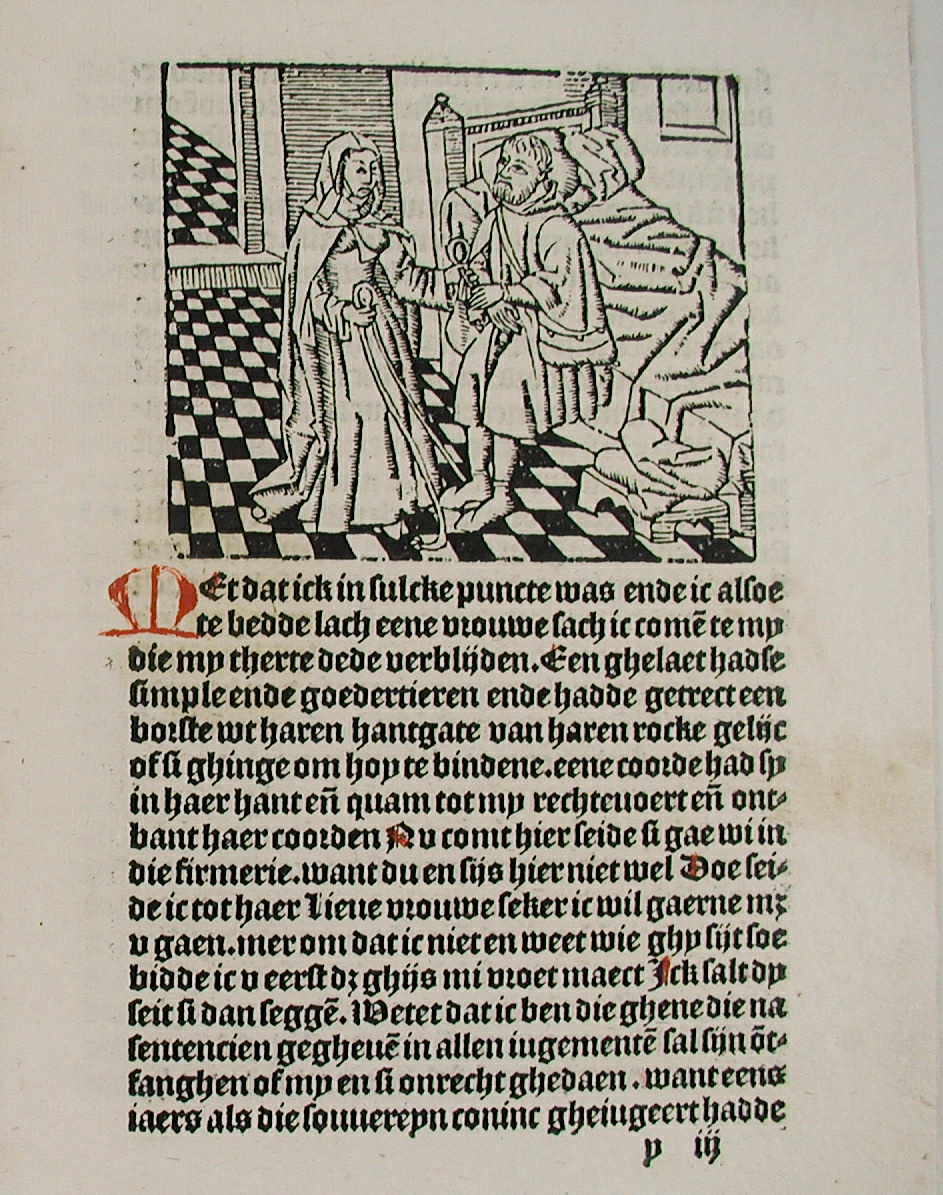 MEt dat ick in sulcke puncte was ende ic alsoe
te bedde lach eene vrouwe sach ic comē te my
die my therte dede verblijden. Een ghelaet hadse
simple ende goedertieren ende hadde getrect een
borste wt haren hantgate van haren rocke gelijc
of si ghinge om hoy te bindene. eene coorde had sy
in haer hant eñ quam tot my rechteuoert eñ ont-
bant haer coorden Nv comt hier seide si gae wi in
die firmerie. want du en sijs hier niet wel Doe sei-
de ic tot haer Lieue vrouwe seker ic wil gaerne mꝫ
v gaen. mer om dat ic niet en weet wie ghy sijt soe
bidde ic v eerst dꝫ ghijs mi vroet maect Jck salt dy
seit si dan seggē. Wetet dat ic ben die ghene die na
sentencien gegheuē in allen iugementē sal sijn ōt-
fanghen of my en si onrecht ghedaen. want eens
iaers als die souuereyn coninc gheiugeert hadde
y iij